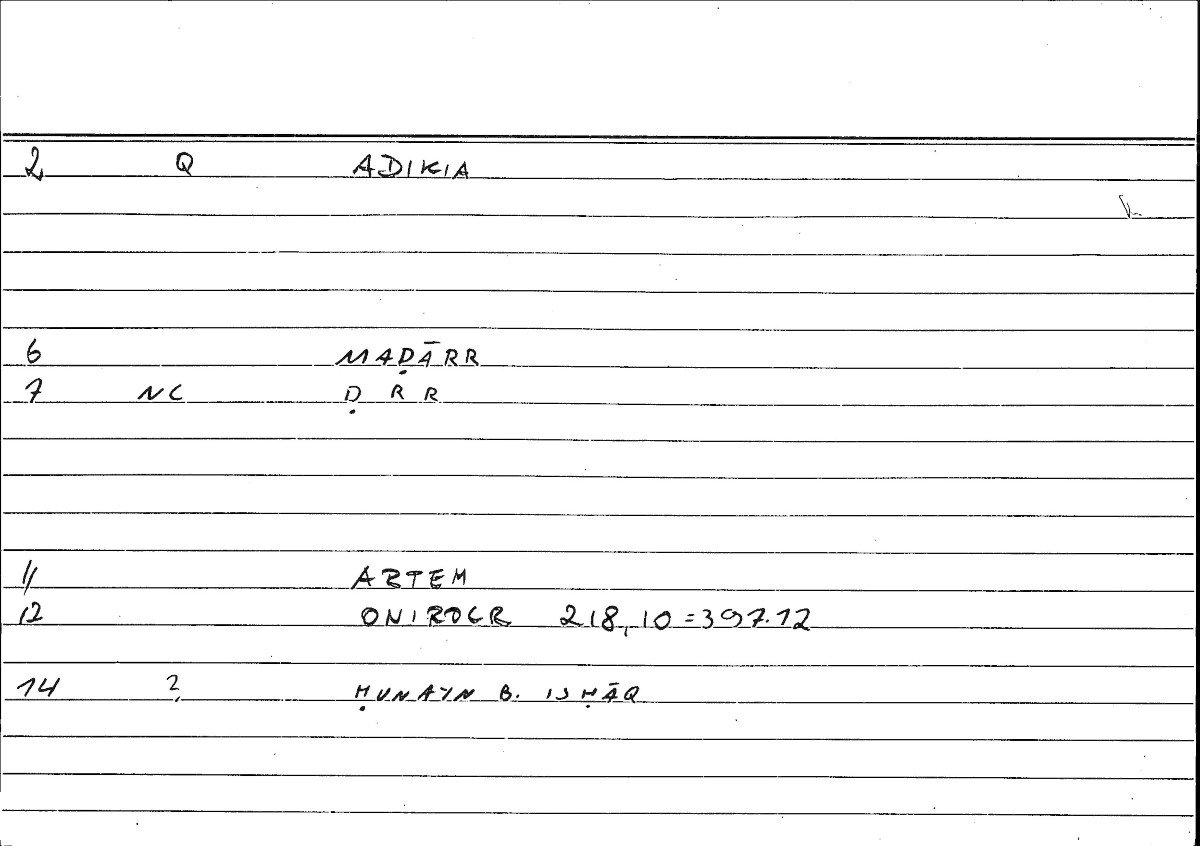 2 Q ADIKIA
6 MAḌĀRR
7 NC Ḍ R R
11 ARTEM
12 ONIROCR 218,10=397.12
14 ? ḤUNAYN B. ISḤĀQ